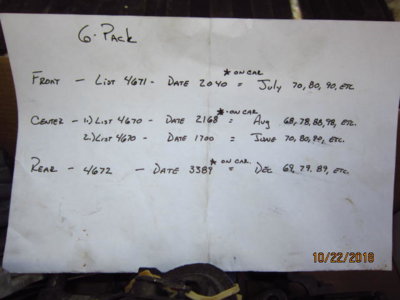 6-Pack
* ON CAR
FRONT - LIST 4671 - DATE 2040 = July 70, 80, 90, ETC.
* ON CAR
CENTER - 1.) LIST 4670 - DATE 2168 = Aug 68, 78, 88, 98, ETC.
2.) LIST 4670 - DATE 1700 = JUNE 70, 80, 90, ETC.
* ON CAR
REAR - 4672 - DATE 3389 = DEC 69, 79, 89, ETC.
10/22/2018